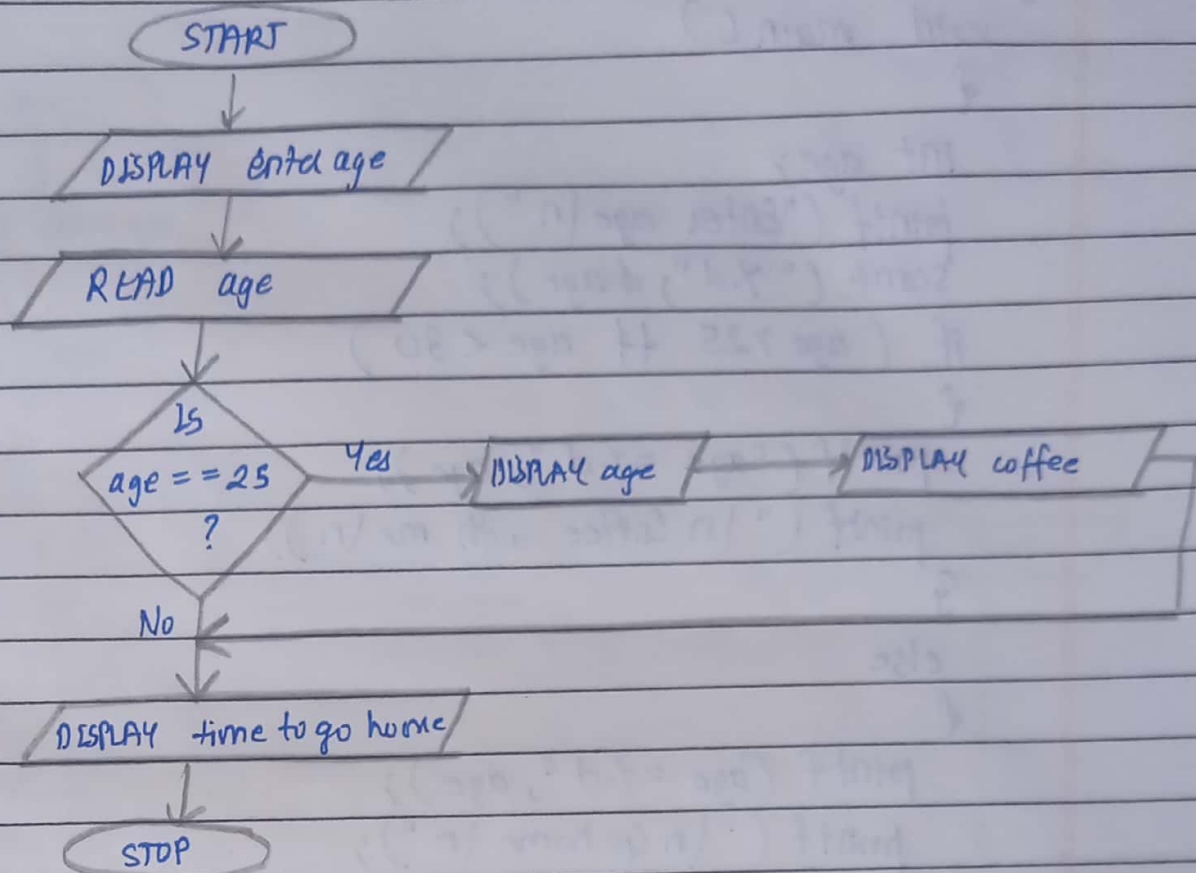 START
DISPLAY enter age
READ age
Is
age == 25
?
Yes
DISPLAY age
DISPLAY coffee
No
DISPLAY time to go home
STOP